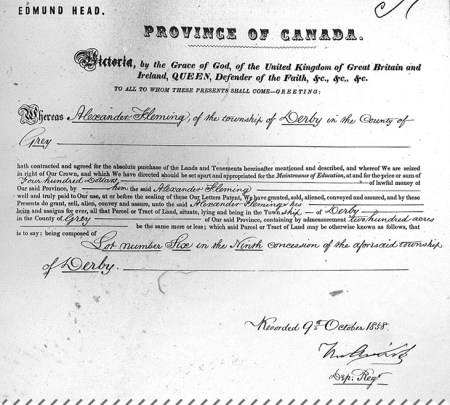 EDMUND HEAD.
PROVINCE OF CANADA.
Victoria, by the Grace of God, of the United Kingdom of Great Britain and
Ireland, QUEEN, Defender of the Faith, &c., &c., &c.
TO ALL TO WHOM THESE PRESENTS SHALL COME—GREETING:
Whereas Alexander Fleming, of the township of Derby in the County of
Grey
hath contracted and agreed for the absolute purchase of the Lands and Tenements hereinafter mentioned and described, and whereof We are seized
in right of Our Crown, and which We have directed should be set apart and appropriated for the Maintenance of Education, at and for the price or sum of
Four hundred Dollars of lawful money of
Our said Province, by him the said Alexander Fleming
well and truly paid to Our use, at or before the sealing of these Our Letters Patent, We have granted, sold, aliened, conveyed and assured, and by these
Presents do grant, sell, alien, convey and assure, unto the said Alexander Fleming his
heirs and assigns for ever, all that Parcel or Tract of Land, situate, lying and being in the Township of Derby
in the County of Grey in Our said Province, containing by admeasurement two hundred acres
be the same more or less; which said Parcel or Tract of Land may be otherwise known as follows, that
is to say: being composed of Lot number Six in the Ninth concession of the aforesaid township
of Derby.
Recorded 9th October 1858.
Dep. Regr